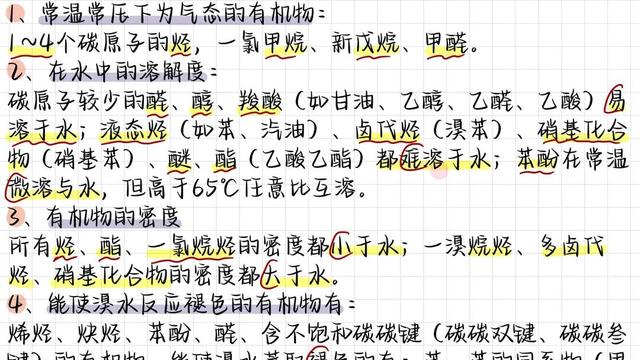 1、常温常压下为气态的有机物：
1~4个碳原子的烃，一氯甲烷、新戊烷、甲醛。
2、在水中的溶解度：
碳原子较少的醛、醇、羧酸（如甘油、乙醇、乙醛、乙酸）易
溶于水；液态烃（如苯、汽油）、卤代烃（溴苯）、硝基化合
物（硝基苯）、醚、酯（乙酸乙酯）都难溶于水；苯酚在常温
微溶与水，但高于65℃任意比互溶。
3、有机物的密度
所有烃、酯、一氯烷烃的密度都小于水；一溴烷烃、多卤代
烃、硝基化合物的密度都大于水。
4、能使溴水反应褪色的有机物有：
烯烃、炔烃、苯酚、醛、含不饱和碳碳键（碳碳双键、碳碳叁